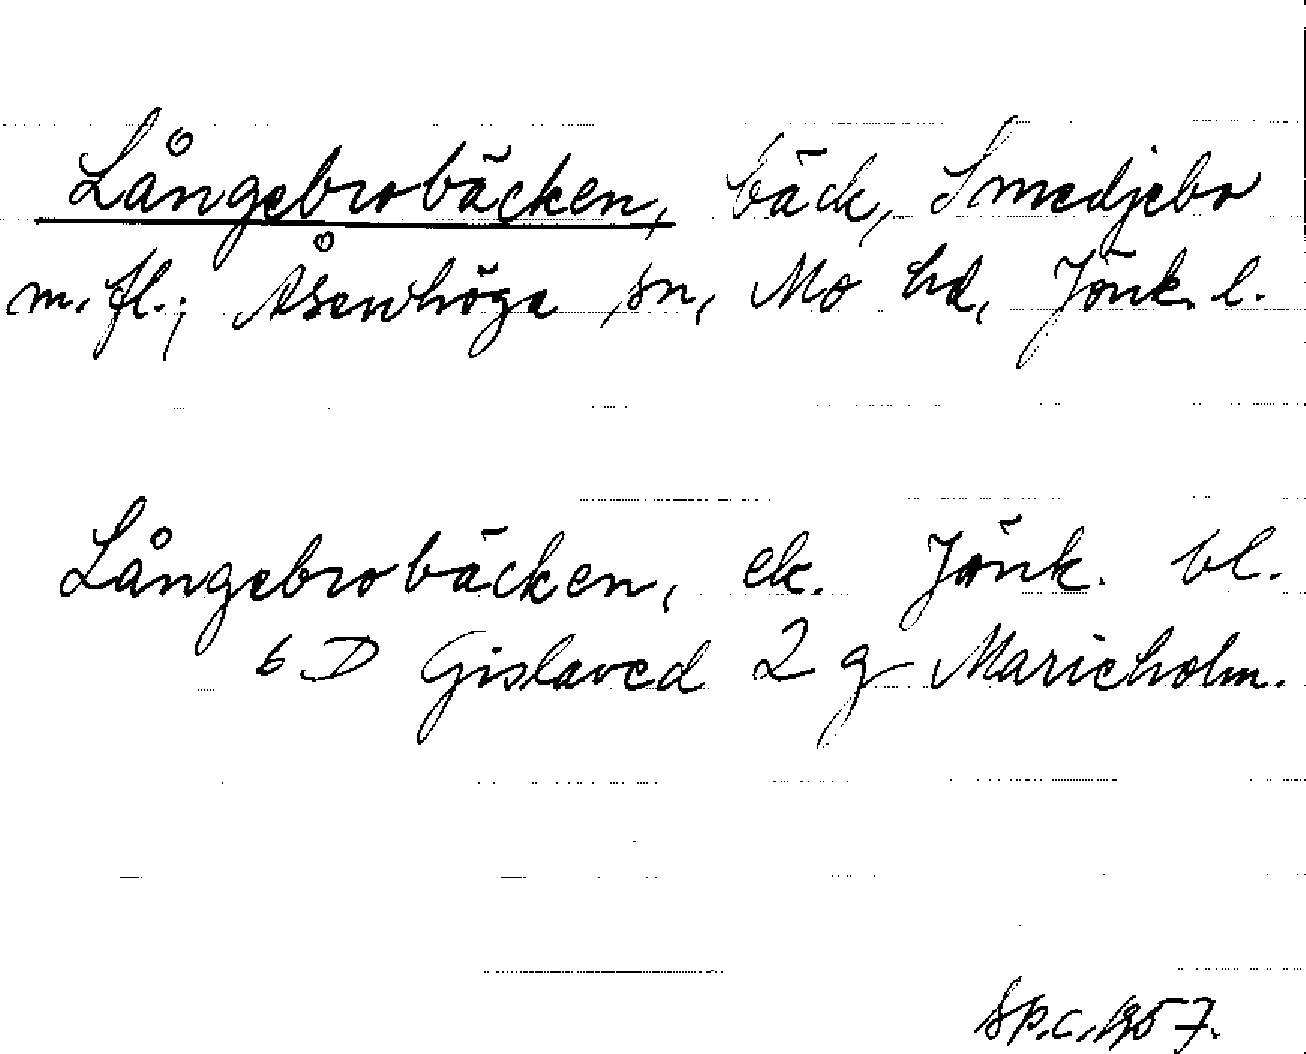 Långebrobäcken, bäck, Smedjebo
m.fl., Åsenhöga sn, Mo hd, Jönk. l.
Långebrobäcken, ek. Jönk. bl.
6 D Gislaved 2 g Marieholm.
Sp.c. 1957.